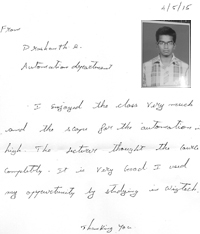 4/5/15
From
Prashanth R.
Automation department
I enjoyed the class very much
and the scope for the automation is
high. The lecturer thought the course
completly. It is very Good I used
my oppurtunity by studying in
Thanking You